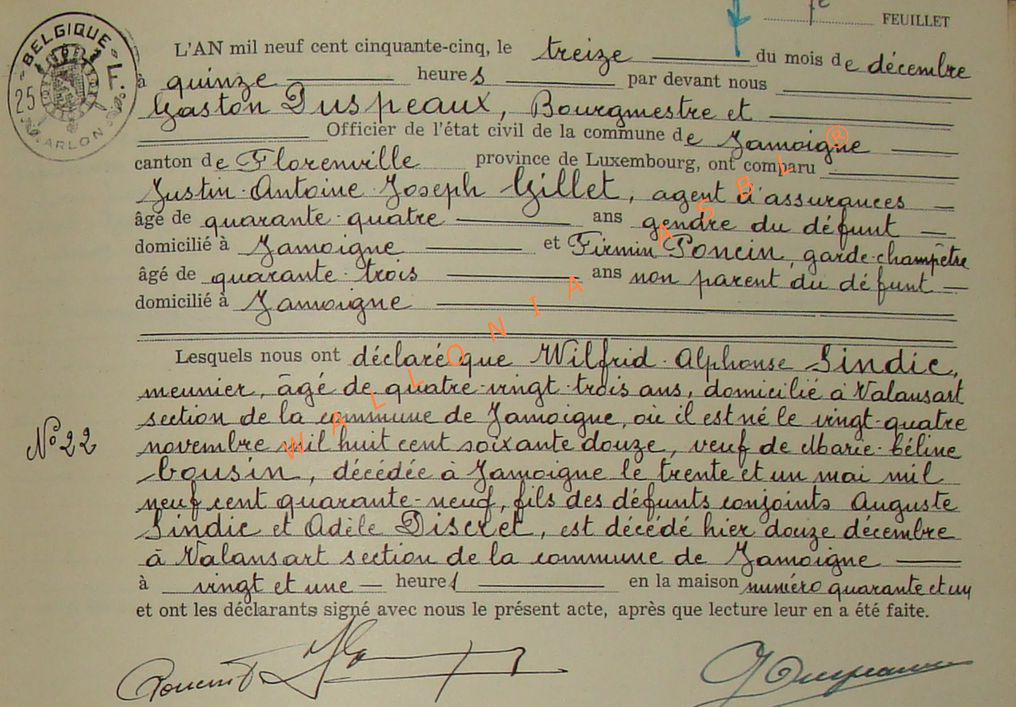 FEUILLET
BELGIQUE
25 F.
ARLON
L'AN mil neuf cent cinquante-cinq, le treize du mois de décembre
à quinze heures par devant nous
Gaston Duspeaux, Bourgmestre et
Officier de l'état civil de la commune de Jamoigne
canton de Florenville province de Luxembourg, ont comparu
Justin-Antoine-Joseph Gillet, agent d'assurances
âgé de quarante-quatre ans gendre du défunt
domicilié à Jamoigne et Firmin Poncin, garde-champêtre
âgé de quarante-trois ans non parent du défunt
domicilié à Jamoigne
Lesquels nous ont déclaré que Wilfrid-Alphonse Sindic,
meunier, âgé de quatre-vingt-trois ans, domicilié à Valansart
section de la commune de Jamoigne, où il est né le vingt-quatre
N° 22
novembre mil huit cent soixante douze, veuf de Marie-Céline
Cousin, décédée à Jamoigne le trente et un mai mil
neuf cent quarante-neuf, fils des défunts conjoints Auguste
Sindic et Adèle Discret, est décédé hier douze décembre
à Valansart section de la commune de Jamoigne
à vingt et une heure en la maison numéro quarante et un
et ont les déclarants signé avec nous le présent acte, après que lecture leur en a été faite.
Poncin F
G Duspeaux
WALLONIA ASBL ®